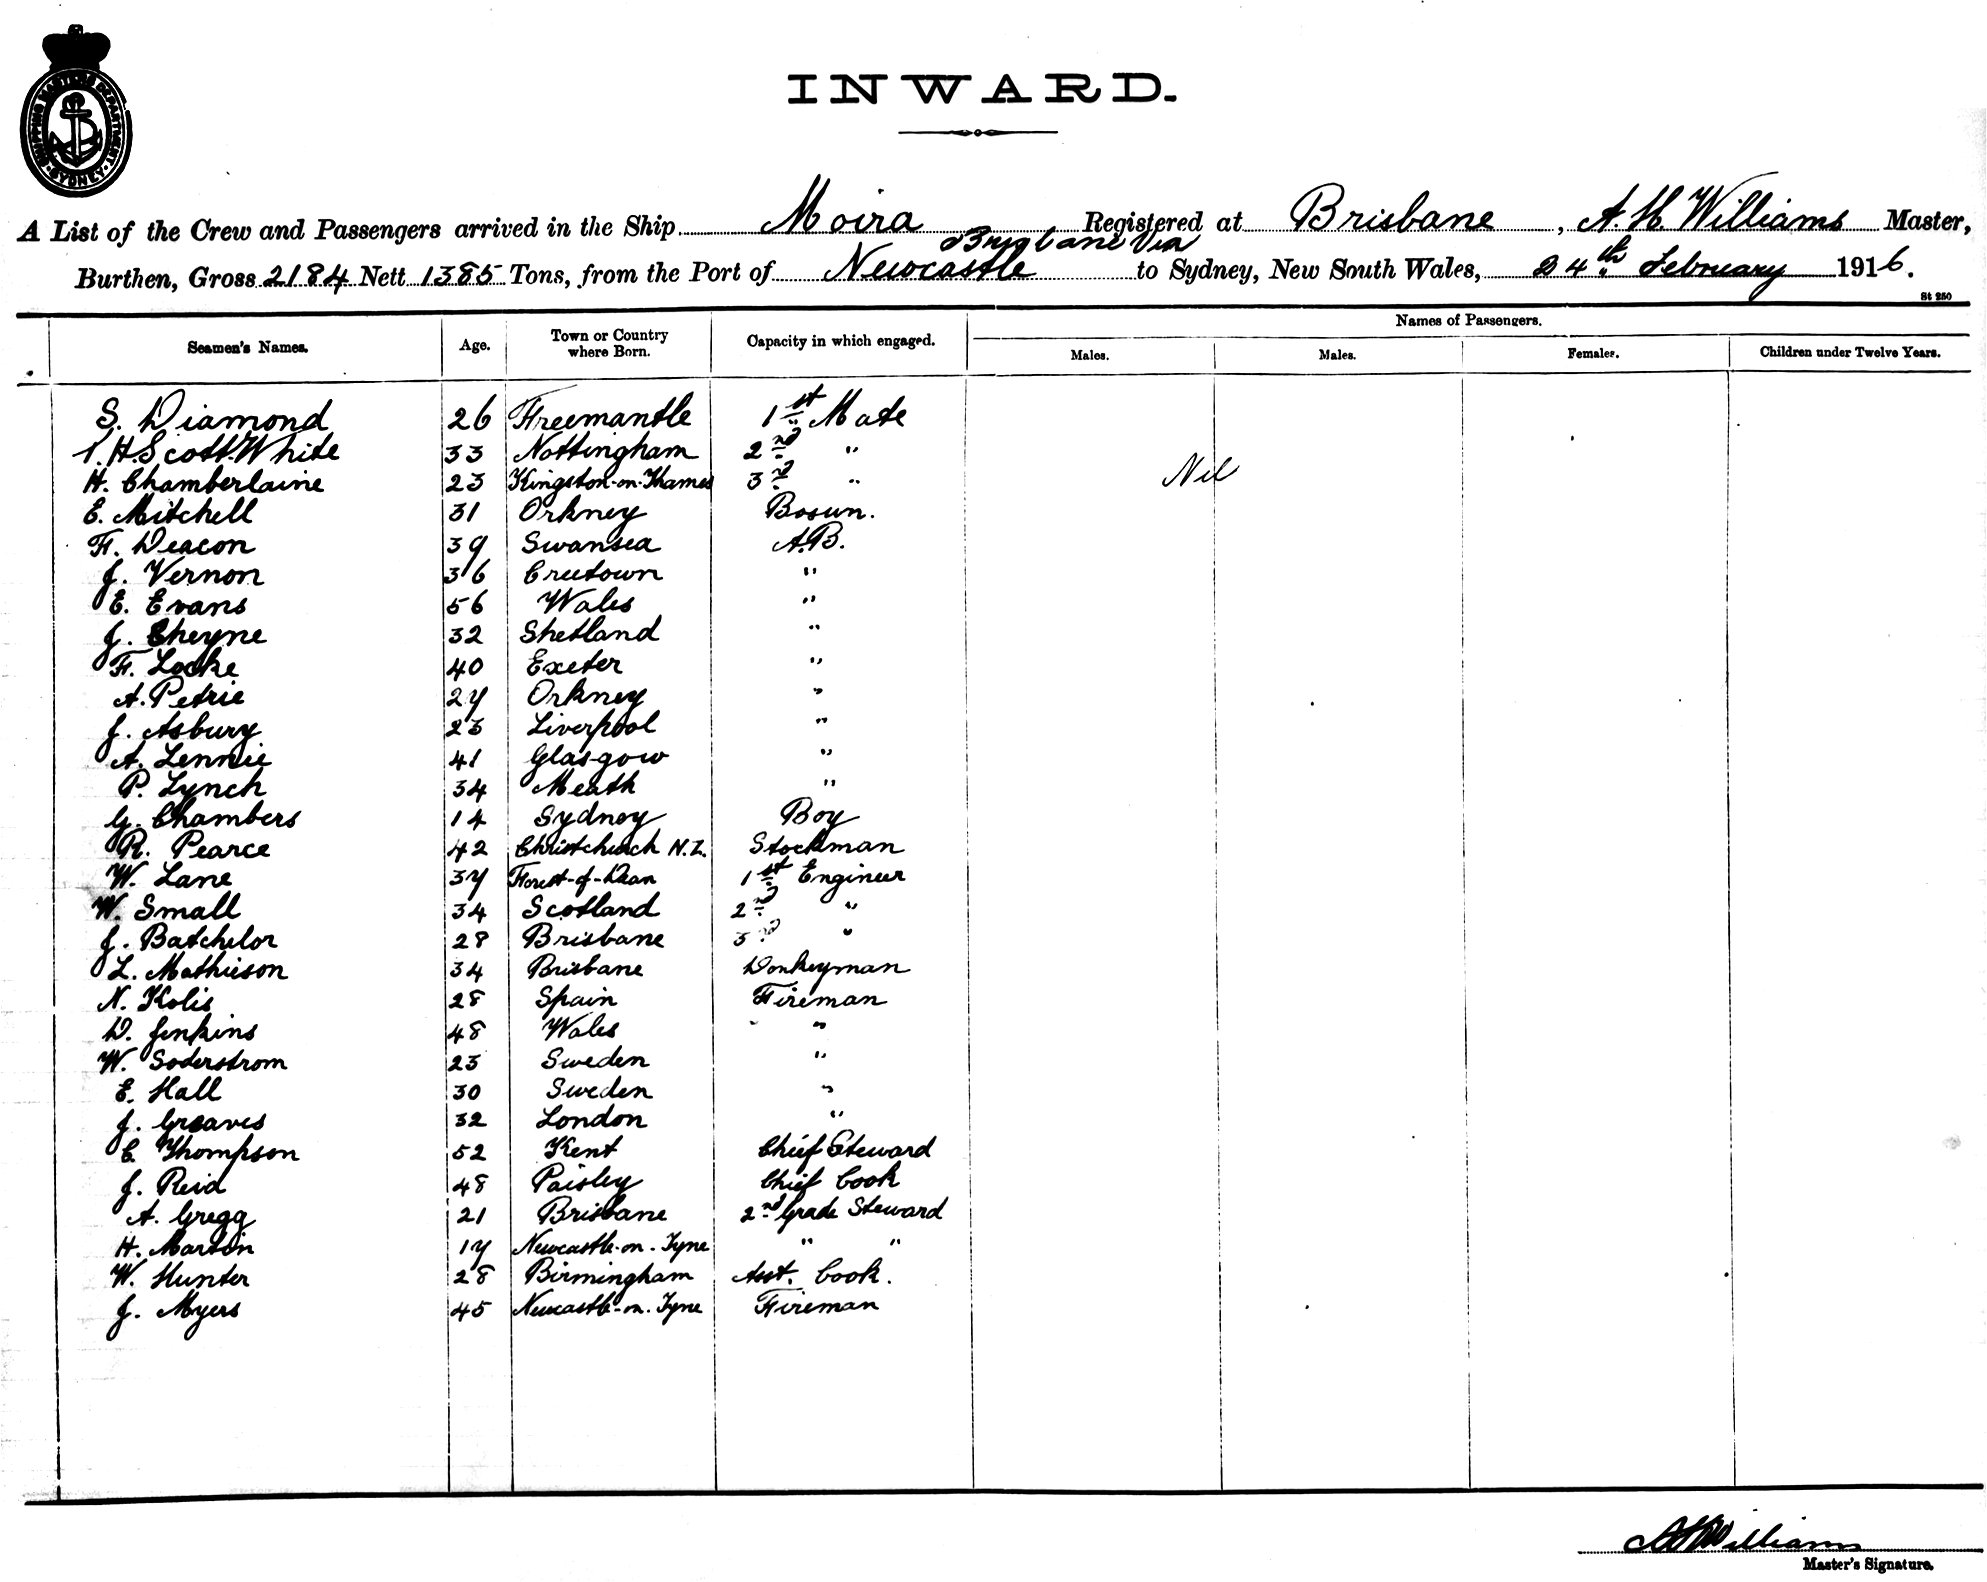 SHIPPING MASTERS DEPARTMENT
SYDNEY
INWARD.
A List of the Crew and Passengers arrived in the Ship Moira Registered at Brisbane, A. H. Williams Master,
Brisbane Via
Burthen, Gross 2184 Nett 1385 Tons, from the Port of Newcastle to Sydney, New South Wales, 24th February 1916.
St 250
Seamen's Names. Age. Town or Country where Born. Capacity in which engaged. Names of Passengers.
Males. Males. Females. Children under Twelve Years.
S. Diamond 26 Freemantle 1st Mate
T. H. Scott. White 33 Nottingham 2nd "
H. Chamberlaine 23 Kingston-on-Thames 3rd " Nil
E. Mitchell 31 Orkney Bosun.
F. Deacon 39 Swansea A.B.
J. Vernon 36 Creetown "
E. Evans 56 Wales "
J. Cheyne 32 Shetland "
F. Locke 40 Exeter "
A. Petrie 27 Orkney "
J. Asbury 23 Liverpool "
A. Lennie 41 Glasgow "
P. Lynch 34 Meath "
G. Chambers 14 Sydney Boy
R. Pearce 42 Christchurch N.Z. Stockman
W. Lane 37 Forest-of-Dean 1st Engineer
W. Small 34 Scotland 2nd "
J. Batchelor 28 Brisbane 3rd "
L. Mathieson 34 Brisbane Donkeyman
N. Kolis 28 Spain Fireman
D. Jenkins 48 Wales "
W. Soderstrom 23 Sweden "
E. Hall 30 Sweden "
J. Greaves 32 London "
C. Thompson 52 Kent Chief Steward
J. Reid 48 Paisley Chief Cook
A. Gregg 21 Brisbane 2nd Grade Steward
H. Martin 17 Newcastle-on-Tyne " "
W. Hunter 28 Birmingham Asst. Cook.
J. Myers 45 Newcastle-on-Tyne Fireman
A H Williams
Master's Signature.